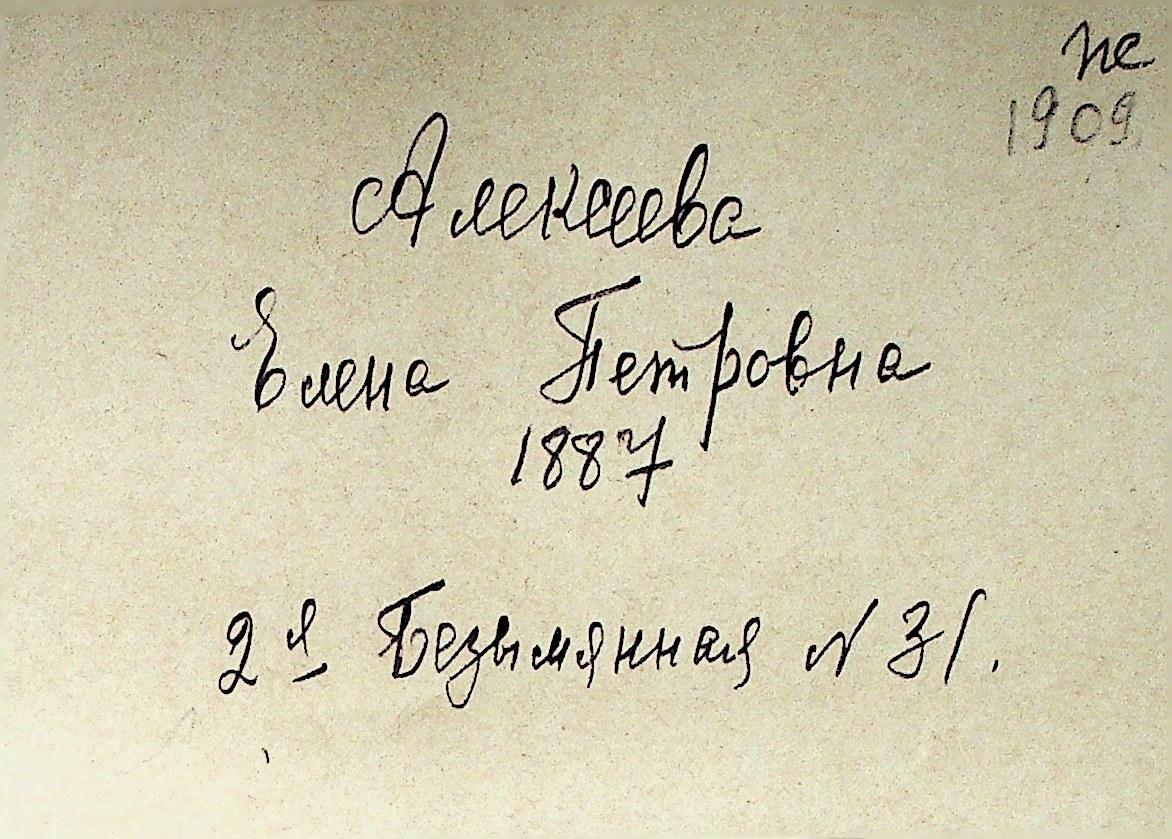 1909
Алексеева
Елена Петровна
1887
2я Безымянная № 31.